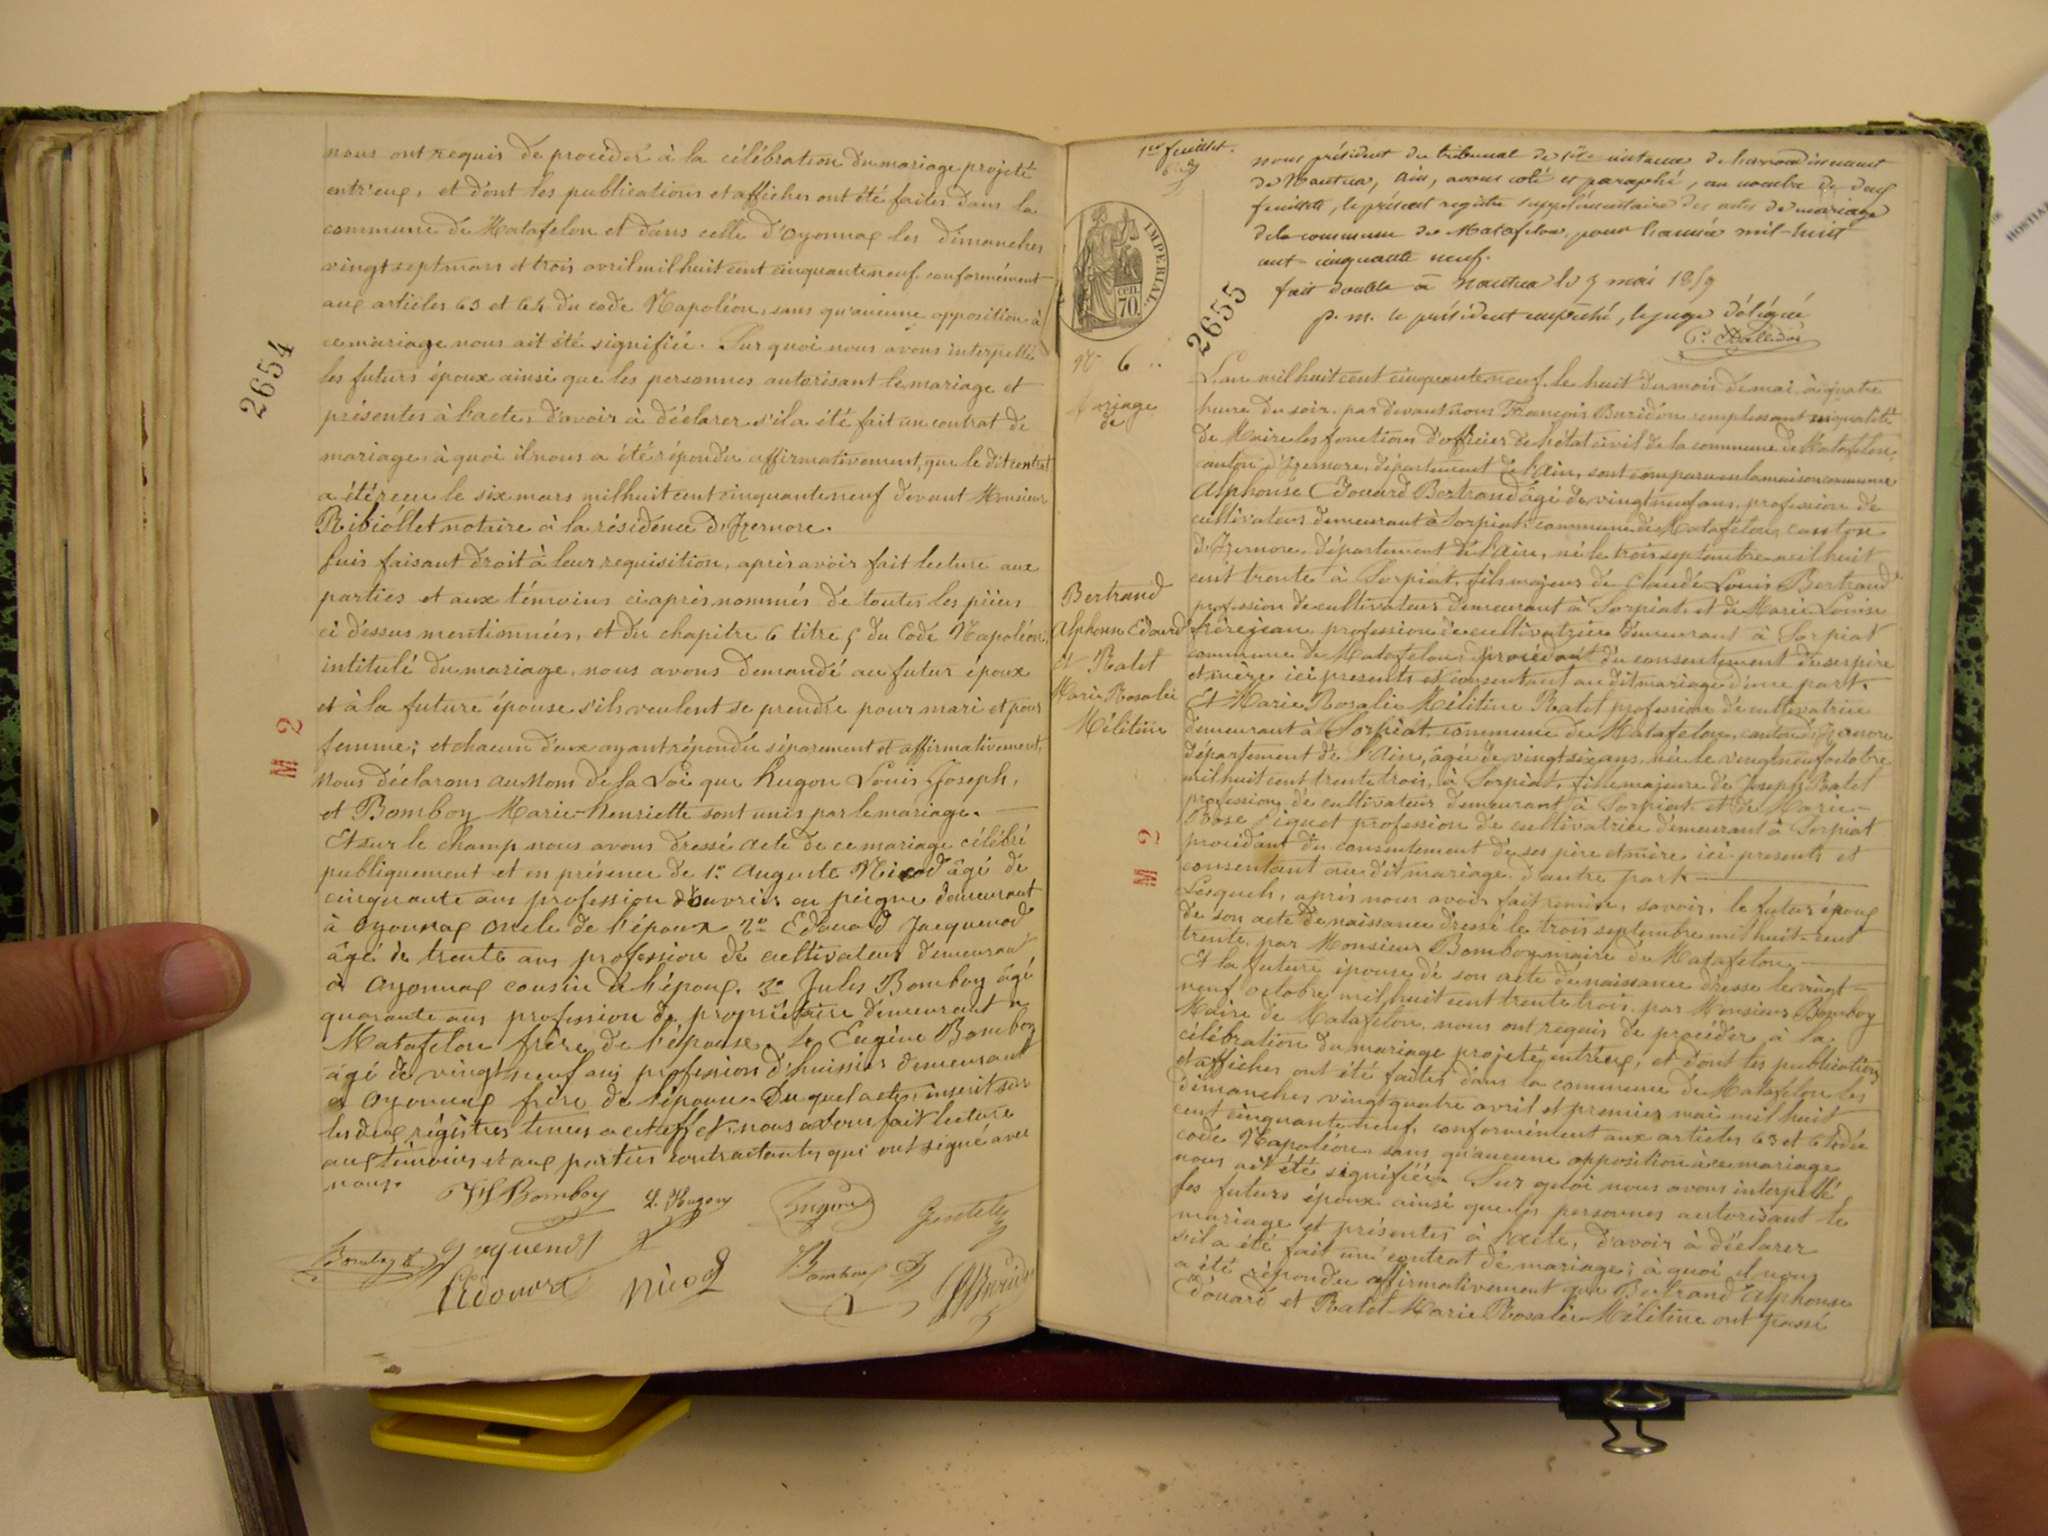 nous ont requis de procéder à la célébration du mariage projeté
entr'eux, et dont les publications et affiches ont été faites dans la
commune de Matafelon et dans celle d'Oyonnax les dimanches
vingt sept mars et trois avril mil huit cent cinquante neuf conformément
aux articles 63 et 64 du code Napoléon, sans qu'aucune opposition à
ce mariage nous ait été signifiée. Sur quoi nous avons interpellé
les futurs époux ainsi que les personnes autorisant le mariage et
présentes à l'acte, d'avoir à déclarer s'il a été fait un contrat de
mariage, à quoi il nous a été répondu affirmativement, que le dit contrat
a été reçu le six mars mil huit cent cinquante neuf devant Monsieur
Ribiollet notaire à la résidence d'Izernore.
Puis faisant droit à leur requisition, après avoir fait lecture aux
parties et aux témoins ci après nommés de toutes les pièces
ci dessus mentionnées, et du chapitre 6 titre 5 du Code Napoléon,
intitulé du mariage, nous avons demandé au futur époux
et à la future épouse s'ils veulent se prendre pour mari et pour
femme; et chacun d'eux ayant répondu séparément et affirmativement,
nous déclarons au nom de la Loi que Hugon Louis Joseph,
et Bomboy Marie-Henriette sont unis par le mariage.
Et sur le champ nous avons dressé acte de ce mariage célébré
publiquement et en présence de 1° Auguste Nicod âgé de
cinquante ans profession d'ouvrier en peigne demeurant
à Oyonnax oncle de l'époux 2° Edouard Jacquenod
âgé de trente ans profession de cultivateur demeurant
à Oyonnax cousin de l'époux. 3° Jules Bomboy âgé
quarante ans profession de propriétaire demeurant à
Matafelon frère de l'épouse. 4° Eugène Bomboy
âgé de vingt neuf ans profession d'huissier demeurant
à Oyonnax frère de l'épouse. Du quel acte, inscrit sur
les deux régistres tenus a cet effet, nous avons fait lecture
aux témoins et aux parties contractantes qui ont signé avec
nous.
Bomboy L. Hugon
Jaquenod
Edouard Nicod Bomboy
2654
M 2
1er feuillet.
nous président du tribunal de 1ère instance de l'arrondissement
de Nantua, Ain, avons coté et paraphé, au nombre de deux
feuillets, le présent registre supplémentaire des actes de mariage
de la commune de Matafelon, pour l'année mil-huit
cent-cinquante neuf.
fait double à Nantua le 7 mai 1859
p. m. le président empêché, le juge délégué
IMPERIAL.
70 CEN.
2655
N° 6
Mariage
de
Bertrand
Alphonse Edouard
et Ratel
Marie Rosalie
Mélitine
M 2
L'an mil huit cent cinquante neuf le huit du mois de mai à quatre
heure du soir, par devant nous François Buridon remplissant en qualité
de Maire les fonctions d'officier de l'état civil de la commune de Matafelon,
canton d'Izernore, département de l'Ain, sont comparu en la maison commune
Alphonse Edouard Bertrand âgé de vingt neuf ans, profession de
cultivateur demeurant à Sorpiat commune de Matafelon, canton
d'Izernore, département de l'Ain, né le trois septembre mil huit
cent trente à Sorpiat, fils majeur de Claude Louis Bertrand
profession de cultivateur demeurant à Sorpiat et de Marie Louise
Frèrejean, profession de cultivatrice demeurant à Sorpiat
commune de Matafelon, procédant du consentement de ses père
et mère ici presents et consentant au dit mariage d'une part.
Et Marie Rosalie Mélitine Ratel profession de cultivatrice
demeurant à Sorpiat, commune de Matafelon, canton d'Izernore
département de l'Ain, âgée de vingt six ans, née le vingt neuf octobre
mil huit cent trente trois, à Sorpiat, fille majeure de Joseph Ratel
profession de cultivateur demeurant à Sorpiat et de Marie-
Rose Piquet profession de cultivatrice demeurant à Sorpiat
procédant du consentement de ses père et mère ici presents et
consentant au dit mariage d'autre part.
Lesquels, après nous avoir fait remise, savoir, le futur époux
de son acte de naissance dressé le trois septembre mil huit-cent
trente par Monsieur Bomboy maire de Matafelon.
Et la future épouse de son acte de naissance dressé le vingt-
neuf octobre mil huit cent trente trois par Monsieur Bomboy
Maire de Matafelon, nous ont requis de procéder à la
célébration du mariage projeté entr'eux, et dont les publications
et affiches ont été faites dans la commune de Matafelon les
dimanches vingt quatre avril et premier mai mil huit
cent cinquante neuf, conformément aux articles 63 et 64 du
code Napoléon sans qu'aucune opposition à ce mariage
nous ait été signifiée. Sur quoi nous avons interpellé
les futurs époux ainsi que les personnes autorisant le
mariage et présentes à l'acte, d'avoir à déclarer
s'il a été fait un contrat de mariage; à quoi il nous
a été répondu affirmativement que Bertrand Alphonse
Edouard et Ratel Marie Rosalie Mélitine ont passé